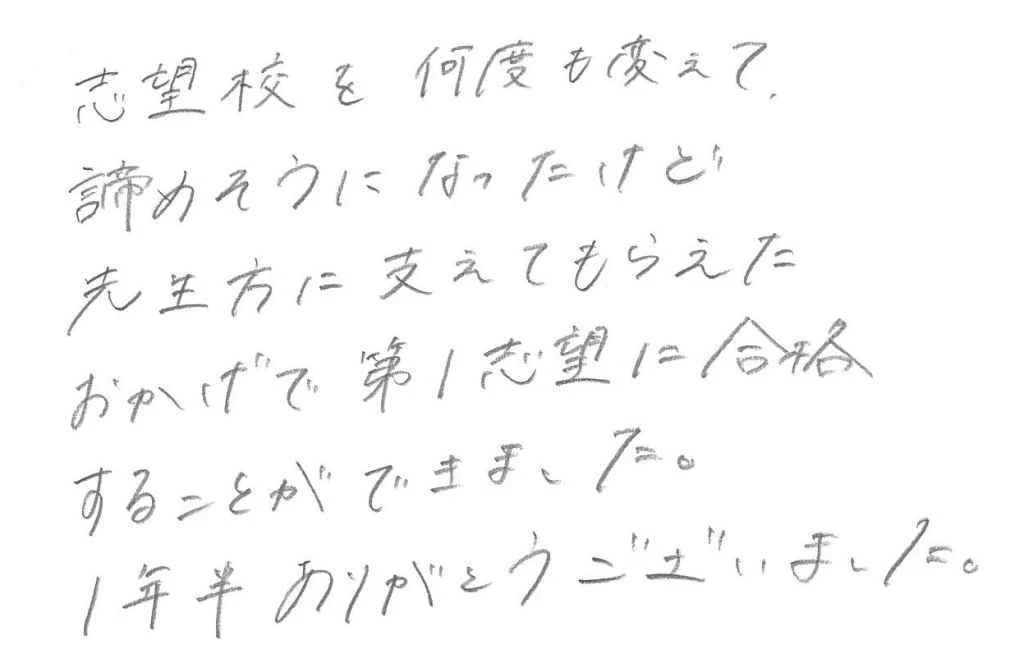 志望校を何度も変えて、
諦めそうになったけど
先生方に支えてもらえた
おかげで第1志望に合格
することができました。
1年半ありがとうございました。